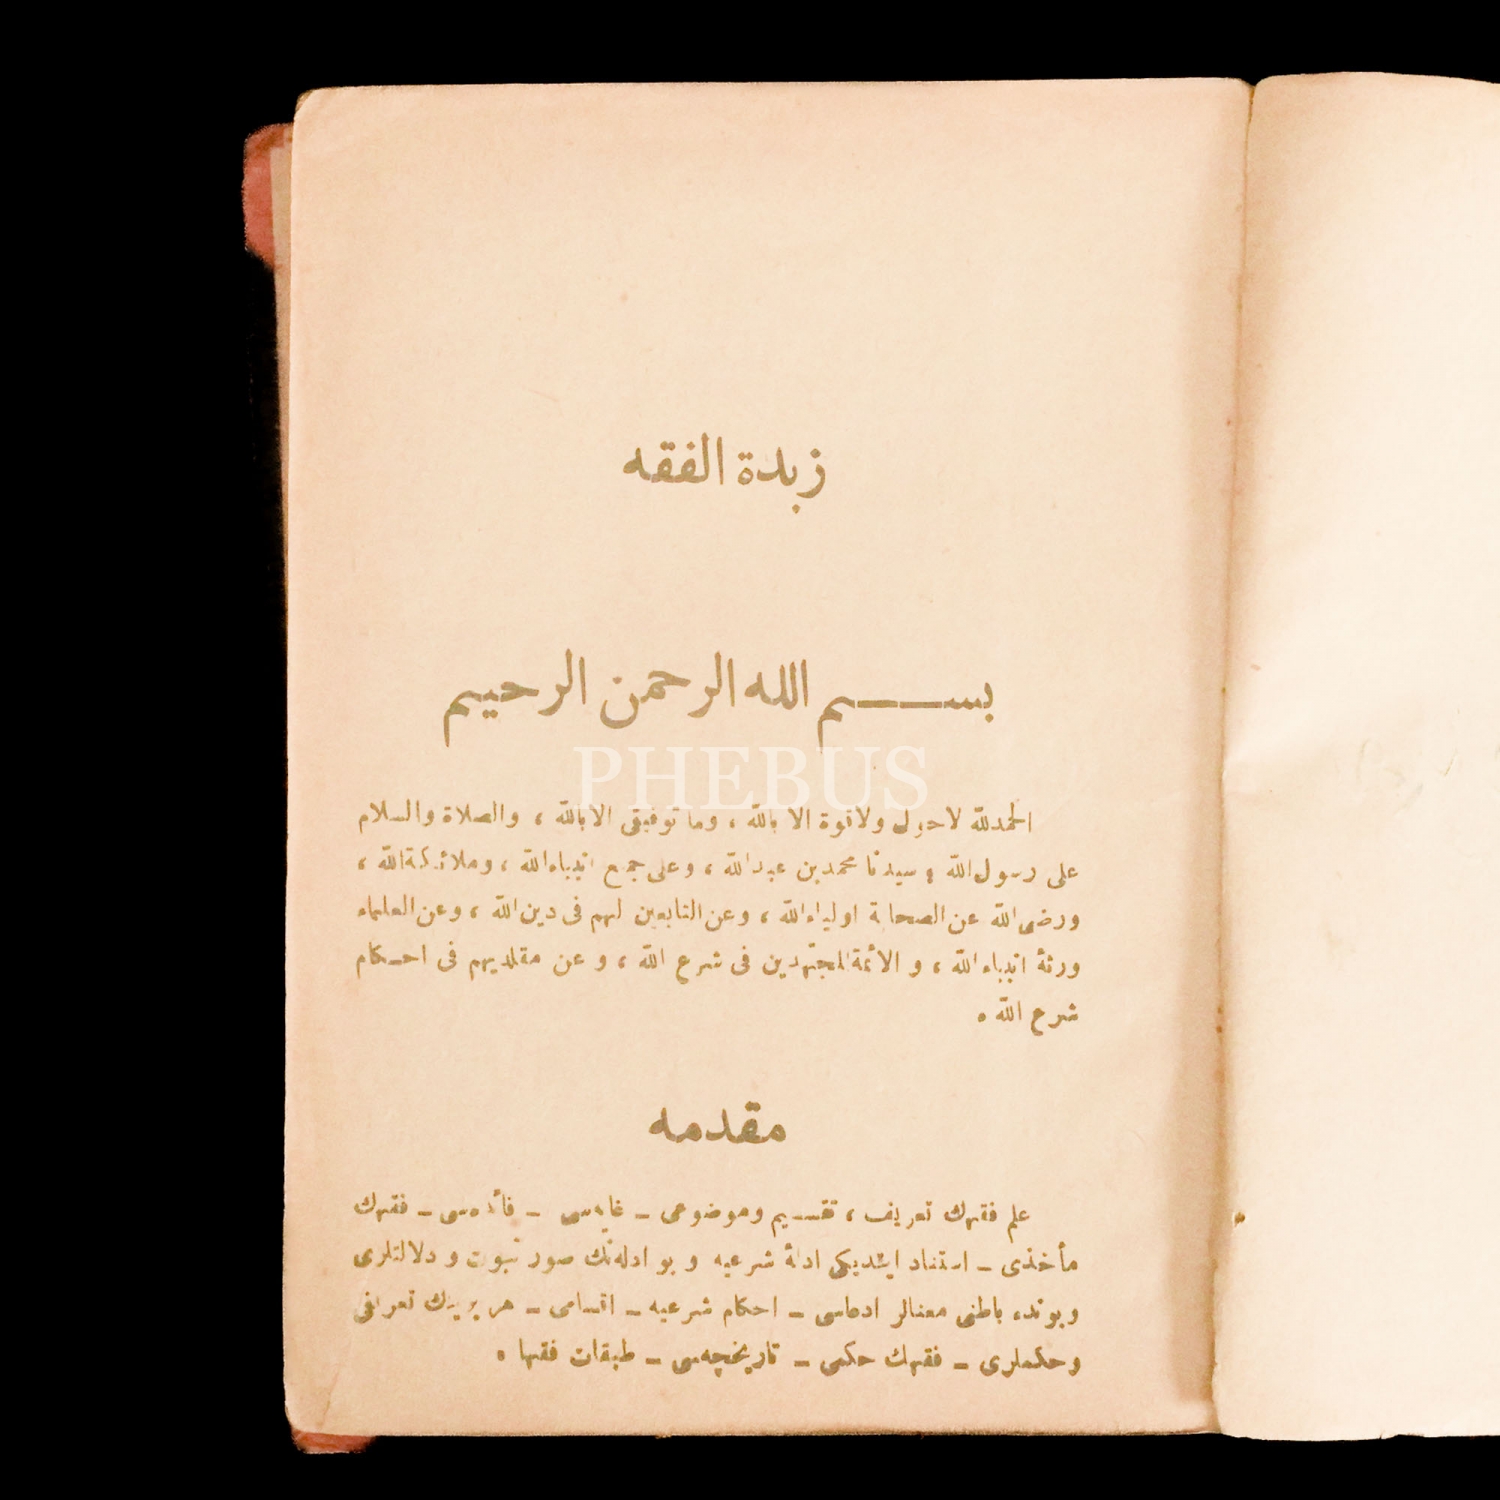 زبدة الفقه
بسم الله الرحمن الرحيم
PHEBUS
الحمدلله لاحول ولاقوة الا بالله ، وما توفيقى الا بالله ، والصلاة والسلام
على رسول الله ؛ سيدنا محمد بن عبدالله ، وعلى جميع انبياءالله ، وملائكةالله ،
ورضى الله عن الصحابة اولياءالله ، وعن التابعين لهم فى دين الله ، وعن العلماء
ورثة انبياءالله ، و الأئمة المجتهدين فى شرع الله ، و عن مقلديهم فى احكام
شرع الله .
مقدمه
علم فقهك تعريف ، تقسيم وموضوعى ـ غايه‌سى ـ فائده‌سى ـ فقهك
مأخذى ـ استناد ايتديكى ادلهٔ شرعيه و بو ادله‌نك صور ثبوت و دلالتلرى
وبونده باطنى معنالر ادعاسى ـ احكام شرعيه ـ اقسامى ـ هر برينك تعريفى
وحكملرى ـ فقهك حكمى ـ تاريخچه‌سى ـ طبقات فقها .